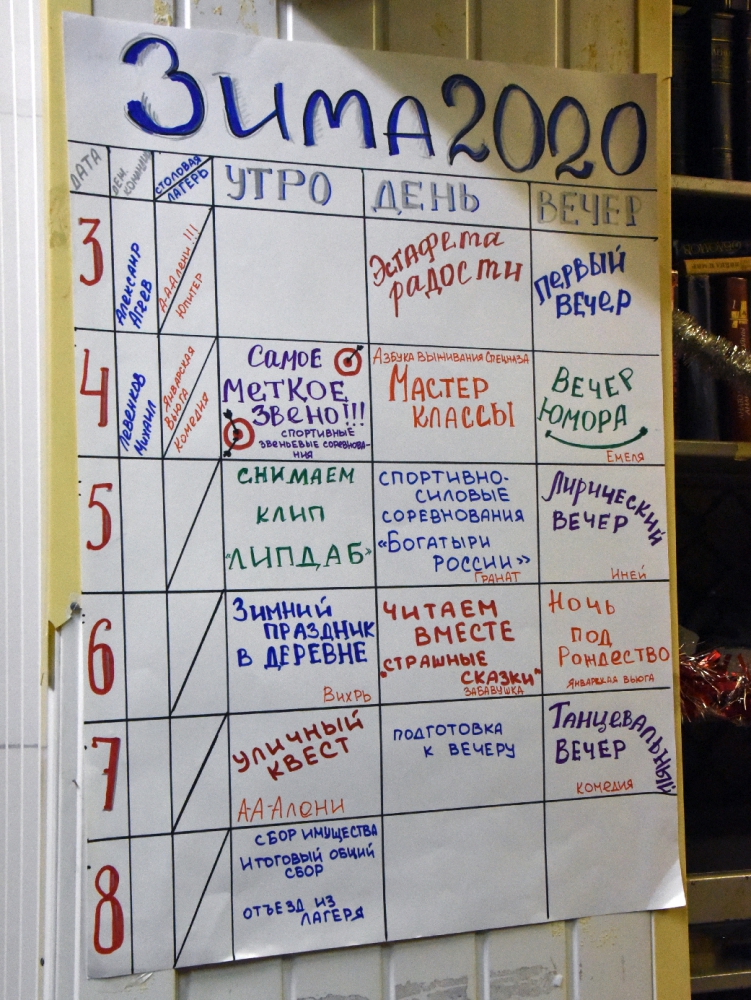 ЗИМА 2020
ДАТА
ДЕЖ. КОМАНДИР
СТОЛОВАЯ
ЛАГЕРЬ
УТРО
ДЕНЬ
ВЕЧЕР
3
Александр
Агеев
А-А-Алени!!!
Юпитер
Эстафета
радости
Первый
вечер
4
Левенков
Михаил
Январская
вьюга
Комедия
Самое
меткое
звено!!!
спортивные
звеньевые соревнова-
ния
Азбука выживания спецназа
Мастер
классы
Вечер
юмора
Емеля
5
Снимаем
клип
"ЛИПДАБ"
Спортивно-
силовые
соревнования
«Богатыри
России»
Гранат
Лирический
вечер
Иней
6
Зимний
праздник
в деревне
Вихрь
Читаем
вместе
"Страшные
сказки"
Забавушка
Ночь
под
Рождество
Январская вьюга
7
Уличный
квест
А-А-Алени
подготовка
к вечеру
Танцевальный
вечер
комедия
8
сбор имущества
итоговый общий
сбор
отъезд из
лагеря